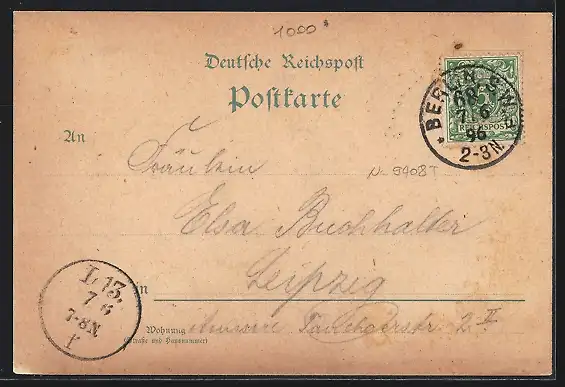 1000
Deutsche Reichspost
Postkarte
BERLIN S.W.
68
7 6
96
2-3N.
REICHSPOST
An
Fräulein
N-9408T
Elsa Buchhalter
Leipzig
in
L 13.
7 6
7-8N.
Wohnung
(Straße und Hausnummer)
Taucherstr. 2 II